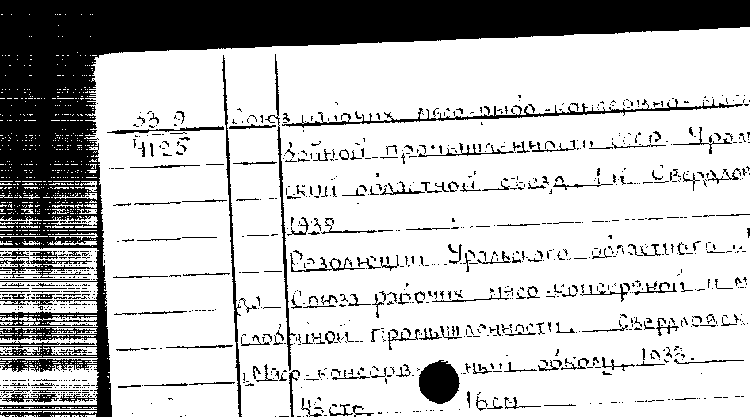 33 9
4125
Союз рабочих мясо-рыбо-консервно-масло
бойной промышленности СССР. Урал
ский областной съезд. 1й Свердлов
1939
Резолюции Уральского областного
да Союза рабочих мясо-консервной и м
слобойной промышленности. Свердловск
Мясо-консерв ный обком, 1933.
43 стр. 16 см